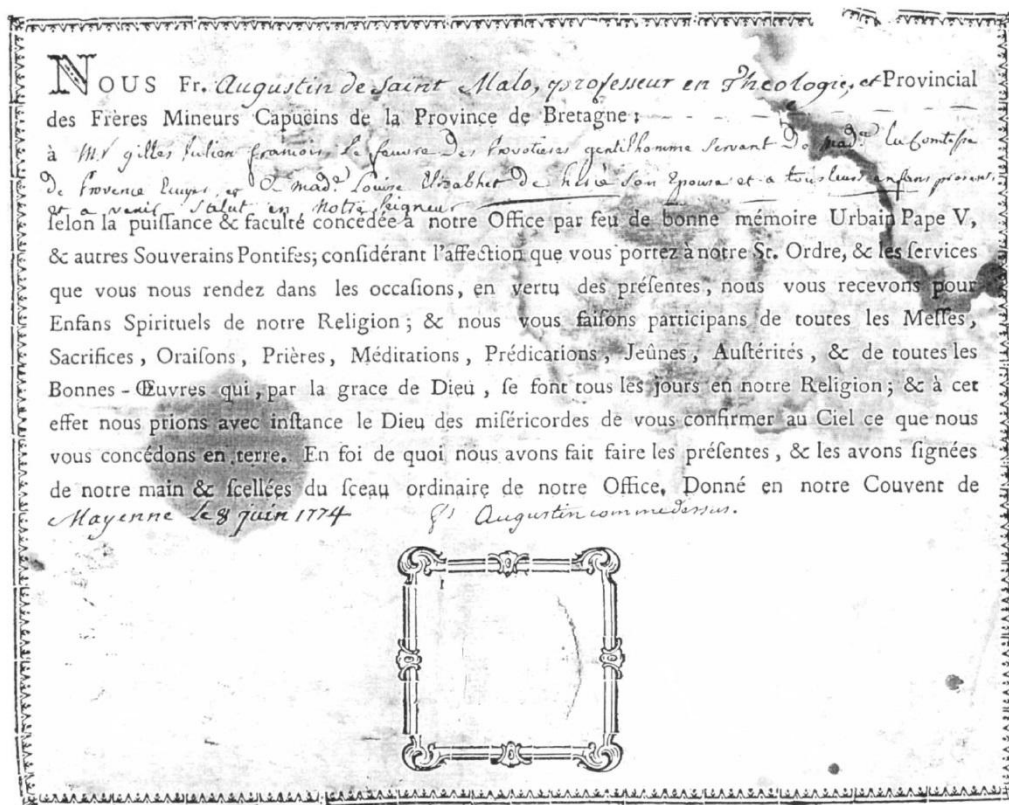 NOUS Fr. Augustin de Saint Malo, professeur en Theologie, et Provincial
des Frères Mineurs Capucins de la Province de Bretagne;
à Mr gilles Julien francois Le feuvre Des Provotieres gentilhomme Servant De mad.e la Comtesse
de Provence Ecuyer et A mad.e Louise Elizabhet De Son Epouse et a tous leurs enfans presens
et a venir Salut en Notre Seigneur
ſelon la puiſſance & faculté concédée à notre Office par feu de bonne mémoire Urbain Pape V,
& autres Souverains Pontifes; conſidérant l'affection que vous portez à notre St. Ordre, & les ſervices
que vous nous rendez dans les occaſions, en vertu des préſentes, nous vous recevons pour
Enfans Spirituels de notre Religion; & nous vous faiſons participans de toutes les Meſſes,
Sacrifices, Oraiſons, Prières, Méditations, Prédications, Jeûnes, Auſtérités, & de toutes les
Bonnes-Œuvres qui, par la grace de Dieu, ſe font tous les jours en notre Religion; & à cet
effet nous prions avec inſtance le Dieu des miſéricordes de vous confirmer au Ciel ce que nous
vous concédons en terre. En foi de quoi nous avons fait faire les préſentes, & les avons ſignées
de notre main & ſcellées du ſceau ordinaire de notre Office, Donné en notre Couvent de
Mayenne le 8 juin 1774 Augustin comme dessus.